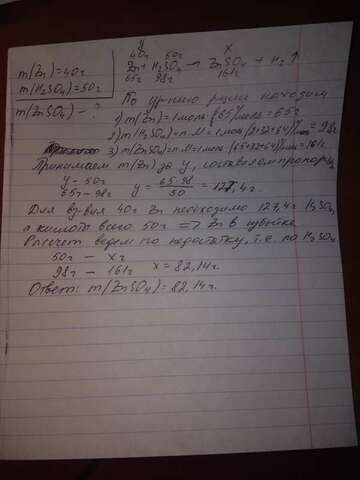 m(Zn)=40г
m(H₂SO₄)=50г
m(ZnSO₄) - ?
y
40г 50г x
Zn + H₂SO₄ → ZnSO₄ + H₂↑
65г 98г 161г
По ур-нию р-ции находим
1) m(Zn)=1моль·65г/моль=65г
2) m(H₂SO₄)=n·M=1моль·(2+32+64)г/моль=98г
3) m(ZnSO₄)=n·M=1моль·(65+32+64)г/моль=161г.
Принимаем m(Zn) за y, составляем пропорц.
y - 50г
65г - 98г
y = 65·98 / 50 = 127,4г.
Для вз-вия 40г Zn необходимо 127,4г H₂SO₄,
а кислоты всего 50г => Zn в избытке
Рассчет ведем по недостатку, т.е. по H₂SO₄
50г - xг
98г - 161г x = 82,14г.
Ответ: m(ZnSO₄)=82,14г.